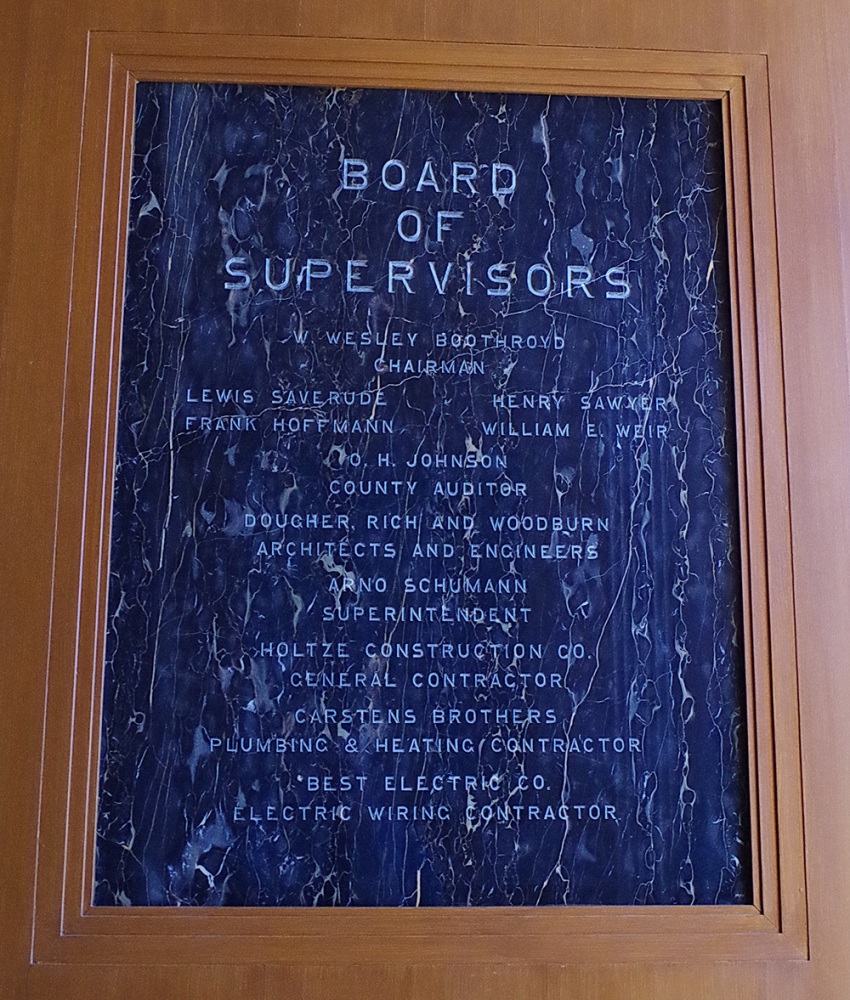 BOARD
OF
SUPERVISORS
W WESLEY BOOTHROYD
CHAIRMAN
LEWIS SAVERUDE HENRY SAWYER
FRANK HOFFMANN WILLIAM E. WEIR
O. H. JOHNSON
COUNTY AUDITOR
DOUGHER, RICH AND WOODBURN
ARCHITECTS AND ENGINEERS
ARNO SCHUMANN
SUPERINTENDENT
HOLTZE CONSTRUCTION CO.
GENERAL CONTRACTOR
CARSTENS BROTHERS
PLUMBING & HEATING CONTRACTOR
BEST ELECTRIC CO.
ELECTRIC WIRING CONTRACTOR